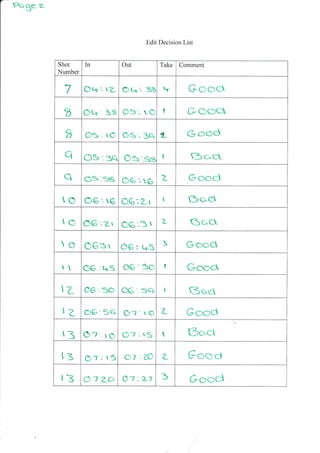 Page 2
Edit Decision List
Shot Number In Out Take Comment
7 04:12 04:38 4 Good
8 04:38 05:10 1 Good
8 05:10 05:39 2 Good
9 05:39 05:58 1 Bad
9 05:58 06:16 2 Good
10 06:16 06:21 1 Bad
10 06:21 06:31 2 Bad
10 06:31 06:45 3 Good
11 06:45 06:50 1 Good
12 06:50 06:59 1 Bad
12 06:59 07:10 2 Good
13 07:10 07:15 1 Bad
13 07:15 07:20 2 Good
13 0720 07:27 3 Good